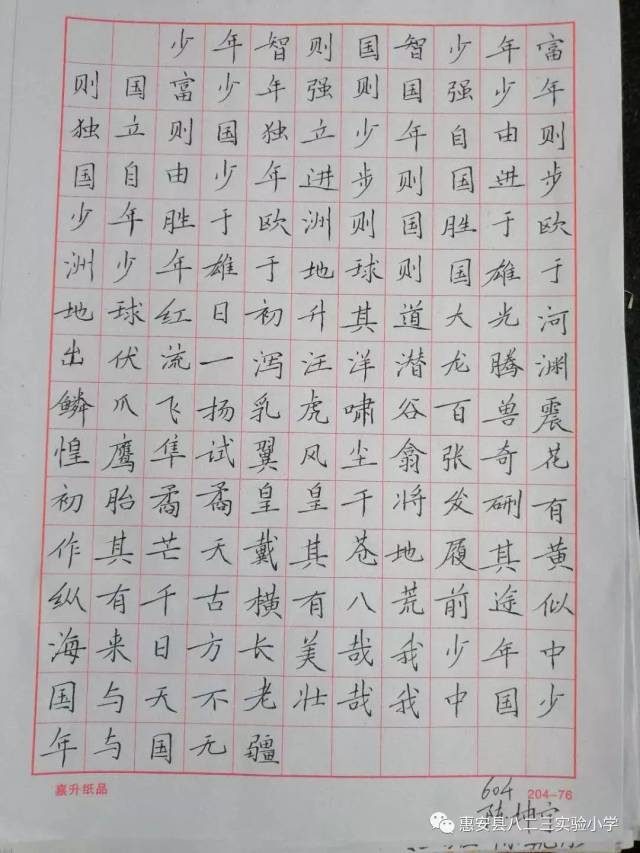 少年智则国智少年富
则国富少年强则国强少年
独立则国独立少年自由则
国自由少年进步则国进步
少年胜于欧洲则国胜于欧
洲少年雄于地球则国雄于
地球红日初升其道大光河
出伏流一泻汪洋潜龙腾渊
鳞爪飞扬乳虎啸谷百兽震
惶鹰隼试翼风尘翕张奇花
初胎矞矞皇皇干将发硎有
作其芒天戴其苍地履其黄
纵有千古横有八荒前途似
海来日方长美哉我少年中
国与天不老壮哉我中国少
年与国无疆
嘉升纸品
604 204-76
惠安县八二三实验小学